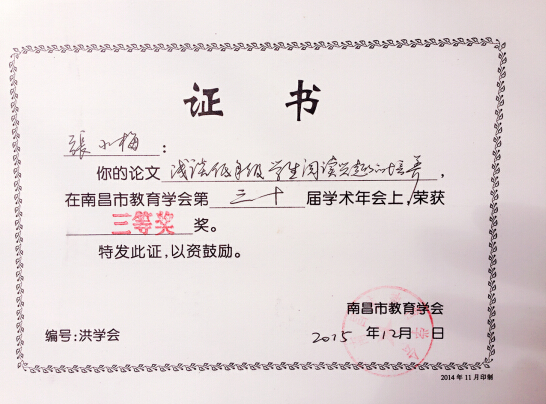 证 书
張小梅：
你的论文浅谈低年级学生阅读兴趣的培养，
在南昌市教育学会第三十届学术年会上，荣获
三等奖奖。
特发此证，以资鼓励。
南昌市教育学会
编号：洪学会 2015年12月 日
2014年11月印制